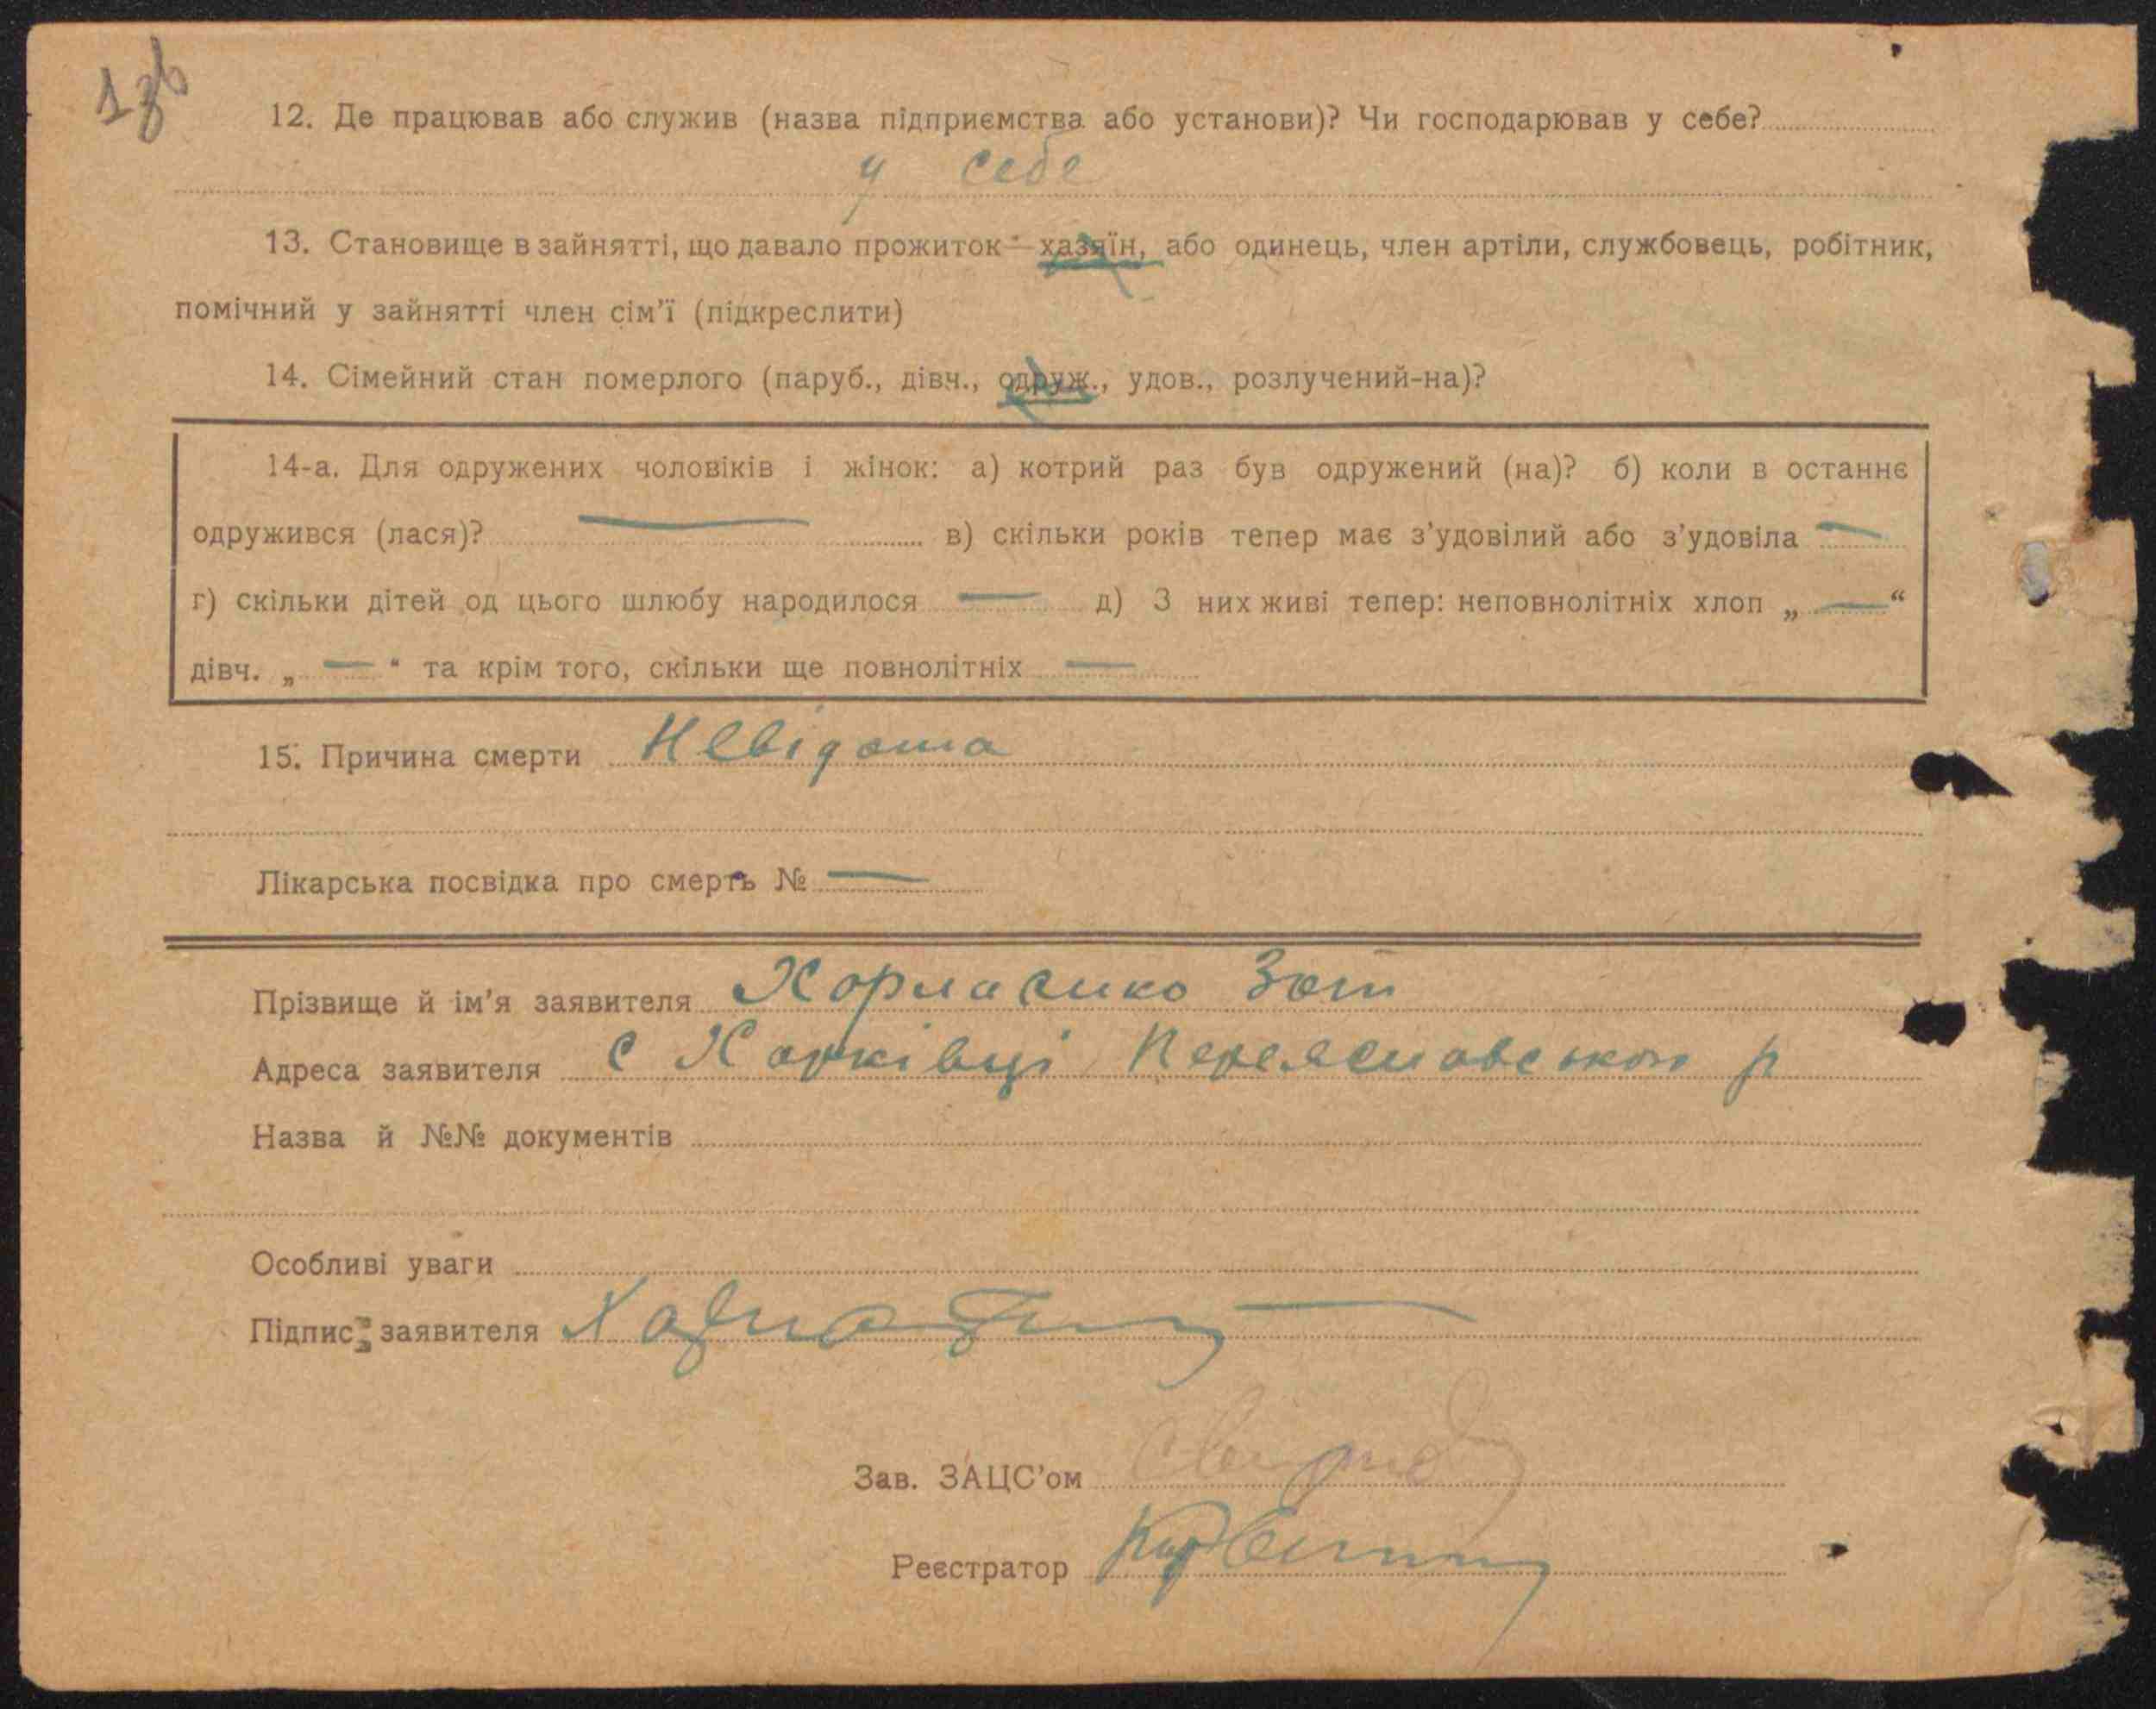 12. Де працював або служив (назва підприємства або установи)? Чи господарював у себе?
у себе
13. Становище в зайнятті, що давало прожиток - хазяїн, або одинець, член артіли, службовець, робітник,
помічний у зайнятті член сім'ї (підкреслити)
14. Сімейний стан померлого (паруб., дівч., одруж., удов., розлучений-на)?
14-а. Для одружених чоловіків і жінок: а) котрий раз був одружений (на)? б) коли в останнє
одружився (лася)? — в) скільки років тепер має з'удовілий або з'удовіла —
г) скільки дітей од цього шлюбу народилося — д) З них живі тепер: неповнолітніх хлоп „ — “
дівч. „ — “ та крім того, скільки ще повнолітніх —
15. Причина смерти Невідома
Лікарська посвідка про смерть № —
Прізвище й ім'я заявителя Зот
Адреса заявителя с Харківці Переяславського р
Назва й №№ документів
Особливі уваги
Підпис заявителя
Зав. ЗАЦС'ом
Реєстратор